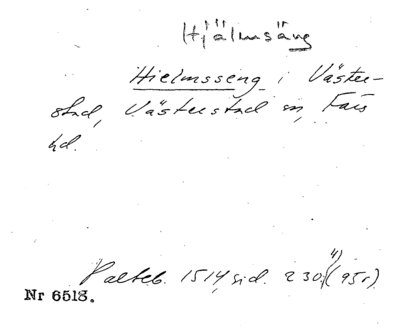 Hjälmsäng
Hielmsseng i Väster-
stad, Västerstad sn, Färs
hd.
4)
Palteb. 1514, sid. 230 (95r)
Nr 6513.